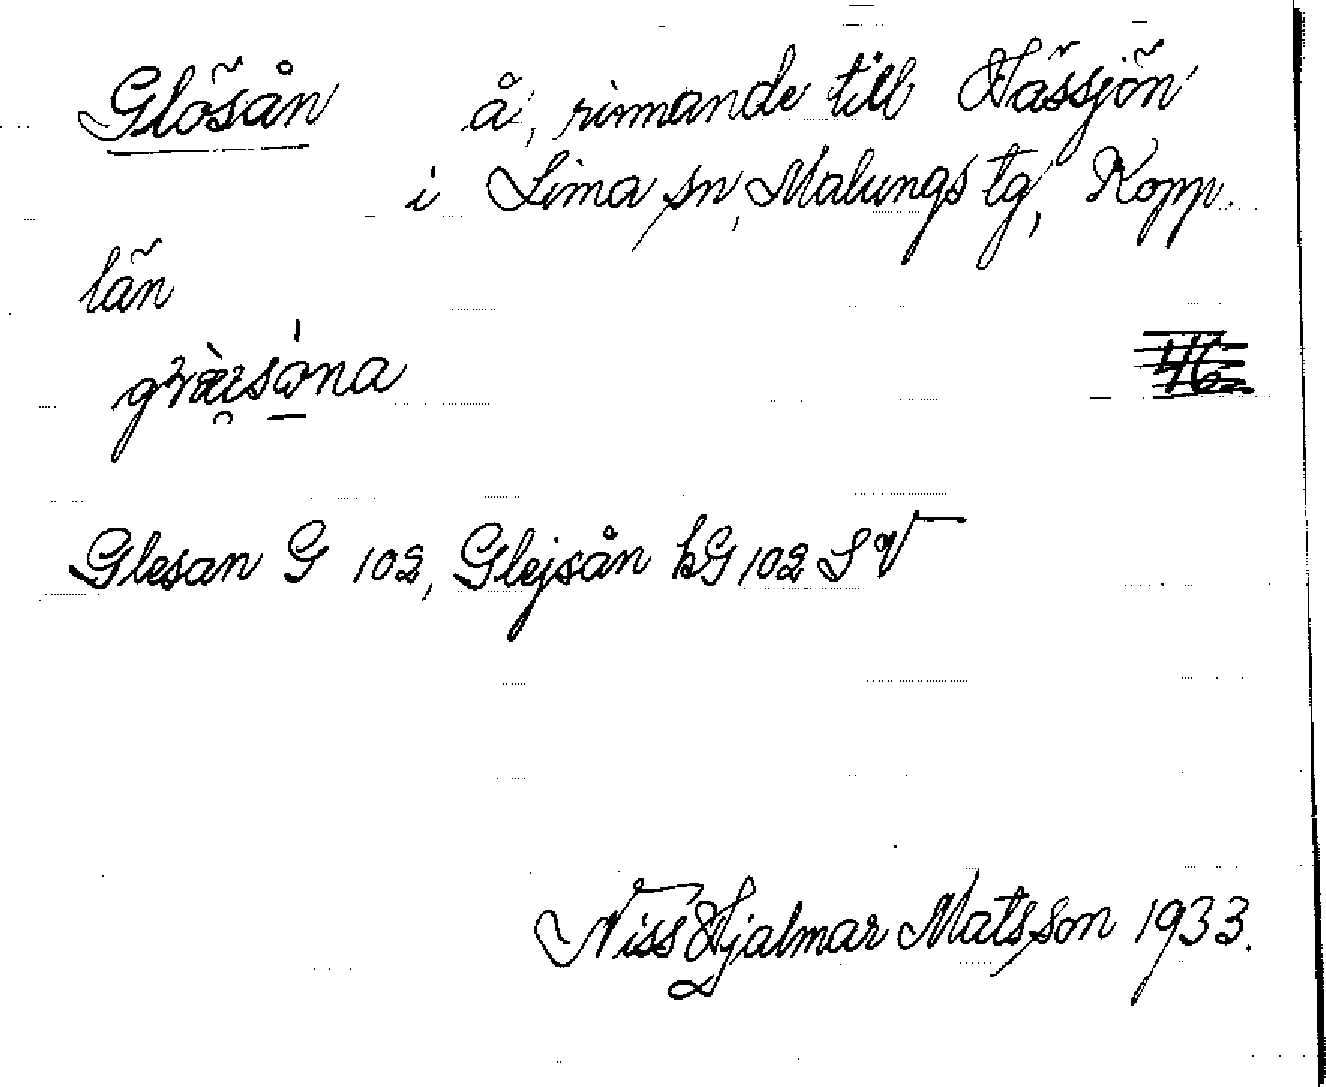 Glösån å, rinnande till Hässjön
i Lima sn, Malungs tg, Kopp.
län
Glesan G 102, Glejsån kG 102 SV
Niss Hjalmar Matsson 1933.